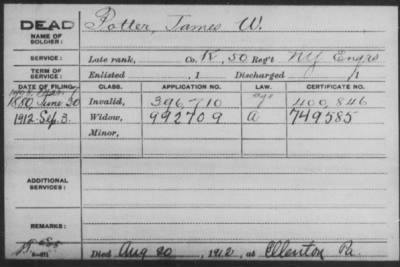 DEAD
NAME OF SOLDIER:
Potter, James W.
SERVICE:
Late rank, Co. K, 50 Reg't NY Engrs
TERM OF SERVICE:
Enlisted , 1 Discharged , 1
DATE OF FILING. CLASS. APPLICATION NO. LAW. CERTIFICATE NO.
1880 June 30 Invalid, 396,710 400,846
1912 Sep. 3. Widow, 992709 a 749585
Minor,
ADDITIONAL SERVICES:
REMARKS:
Died Aug 20, 1912, at Ellenton Pa.